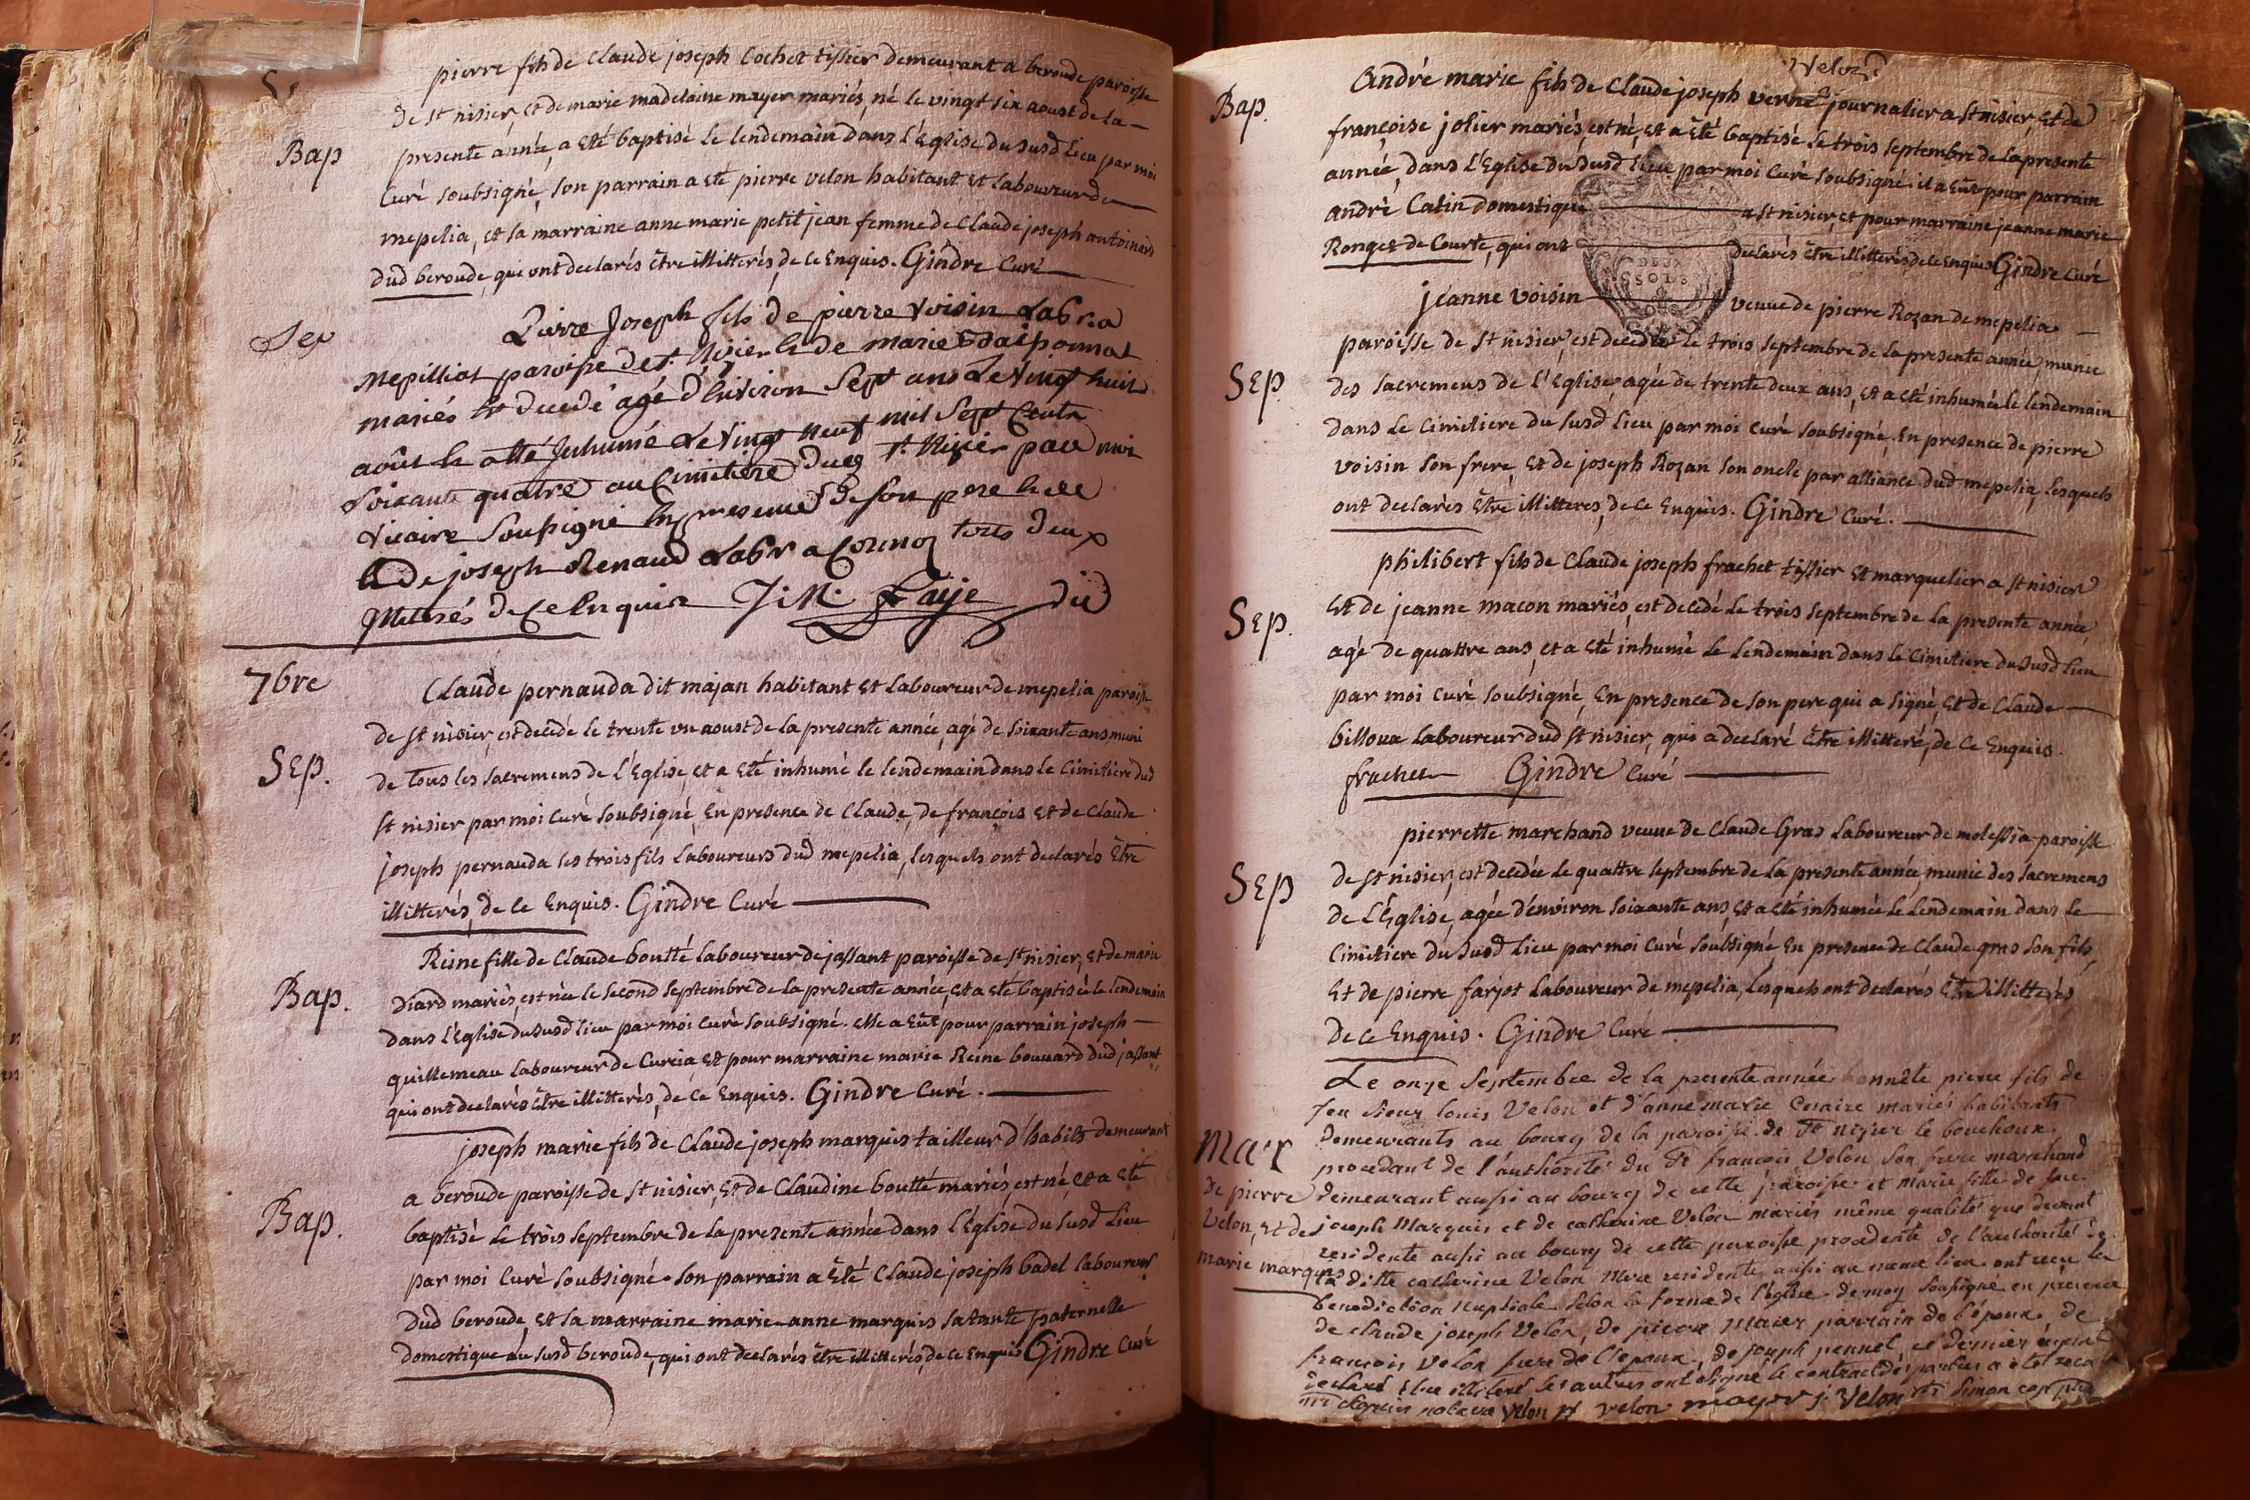 pierre fils de Claude joseph Cochet tissier demeurant a beroude paroisse
de st nisier, et de marie madelaine mayer mariés, né le vingt six aoust de la
Bap
presente année, a eté baptisé le lendemain dans l'Eglise du susd lieu par moi
Curé soubsigné, son parrain a eté pierre velon habitant et laboureur de
mepelia, et sa marraine anne marie petit jean femme de Claude joseph antoinais
dud beroude, qui ont declarés être illitterés, de ce Enquis. Gindre Curé
Sep
Pierre Joseph fils de pierre Voisin Labr a
Mepilliat paroisse de st Nizier & de marie
mariés est decedé agé d'Environ Sept ans Le Vingt huit
août & a été Inhumé Le Vingt Neuf mil Sept Cents
Soixante quatre au Cimitière dud st Nizier par moi
Vicaire Soussigné En presence de son pere
& de joseph Renaud Labr a Cormoz tous deux
illiterés de Ce Enquis J: M: Faije Vic
7bre
Claude pernauda dit majan habitant et Laboureur de mepelia paroisse
de st nisier, est decédé le trente un aoust de la presente année, agé de soixante ans muni
Sep.
de tous les sacremens de l'Eglise, et a eté inhumé le lendemain dans le Cimitiere dud
st nisier par moi Curé soubsigné, En presence de Claude, de françois et de Claude
joseph pernauda ses trois fils Laboureurs dud mepelia, lesquels ont declarés Etre
illitterés, de ce Enquis. Gindre Curé
Reine fille de Claude boutté laboureur de jassant paroisse de st nisier, et de marie
Bap.
Diard mariés, est née le second septembre de la presente année, et a eté baptisée le lendemain
dans l'Eglise du susd lieu par moi Curé soubsigné. elle a Eüt pour parrain joseph
quillemeau laboureur de Curcia et pour marraine marie Reine bouvard dud jassant,
qui ont declarés être illitterés, de ce Enquis. Gindre Curé.
joseph marie fils de Claude joseph marquis tailleur d'habits demeurant
a beroude paroisse de st nisier, et de Claudine boutté mariés, est né, et a eté
Bap.
baptisé le trois septembre de la presente année dans l'Eglise du susd lieu
par moi Curé soubsigné. son parrain a Eté Claude joseph badel laboureur
dud beroude, et sa marraine marie anne marquis sa tante paternelle
domestique au susd beroude, qui ont declarés être illitterés, de ce Enquis Gindre Curé
Veloz
andré marie fils de Claude joseph verne journalier a st nisier, et de
Bap.
françoise jolier mariés, est né, et a eté baptisé le trois septembre de la presente
année, dans l'Eglise du susd lieu par moi Curé soubsigné. il a Eüt pour parrain
andré Catin domestique a st nisier, et pour marraine jeanne marie
Ronget de Courte, qui ont declarés être illitterés, de ce Enquis Gindre Curé
DEUX
SOLS
jeanne voisin veuve de pierre Rozan de mepelia
paroisse de st nisier, est decedée le trois septembre de la presente année, munie
Sep.
des sacremens de l'Eglise, agée de trente deux ans, et a eté inhumée le lendemain
dans le Cimitiere du susd lieu par moi curé soubsigné, En presence de pierre
voisin son frere, et de joseph Rozan son oncle par alliance dud mepelia, lesquels
ont declarés Etre illitteres, de ce Enquis. Gindre Curé.
philibert fils de Claude joseph frachet tissier et marquelier a st nisier
Sep.
et de jeanne macon mariés, est decedé le trois septembre de la presente année
agé de quattre ans, et a eté inhumé le lendemain dans le Cimitiere du susd lieu
par moi curé soubsigné, En presence de son pere qui a signé, et de Claude
billoux laboureur dud st nisier, qui a declaré être illitteré, de ce Enquis.
frachet Gindre Curé
pierrette marchand veuve de Claude Gras Laboureur de molessia paroisse
Sep
de st nisier, est decedée le quattre septembre de la presente année, munie des sacremens
de L'Eglise, agée d'environ soixante ans, et a eté inhumée le lendemain dans le
Cimitiere du susd lieu par moi Curé soubsigné, En presence de Claude gras son fils,
et de pierre farjot Laboureur de mepelia, lesquels ont declarés être illitterés
de ce Enquis. Gindre Curé
Le onze septembre de la presente année honnête pierre fils de
feu sieur louis Velon et d'anne marie Cesaire mariés habitants
Mar
demeurants au bourg de la paroisse de st nizier le bouchoux
procedant de l'authorité du sr françois Velon son frere marchand
de pierre
demeurant aussi au bourg de cette paroisse et marie fille de feu
Velon, et de
joseph Marquis et de catherine Velon mariés même qualité que devant
residente aussi au bourg de cette paroisse procedente de l'authorité de
marie marquis
la ditte catherine Velon mere residente aussi au meme lieu ont recu la
benediction nuptiale selon la forme de l'église de moy soussigné en presence
de claude joseph Velon, de pierre Maier parrain de l'époux de
françois Velon frere de l'epoux, de joseph pennel, ce dernier
declaré être illiteré les autres ont signé le contract des parties a été recu
notaire Velon pf velon mayer j: Velon simon